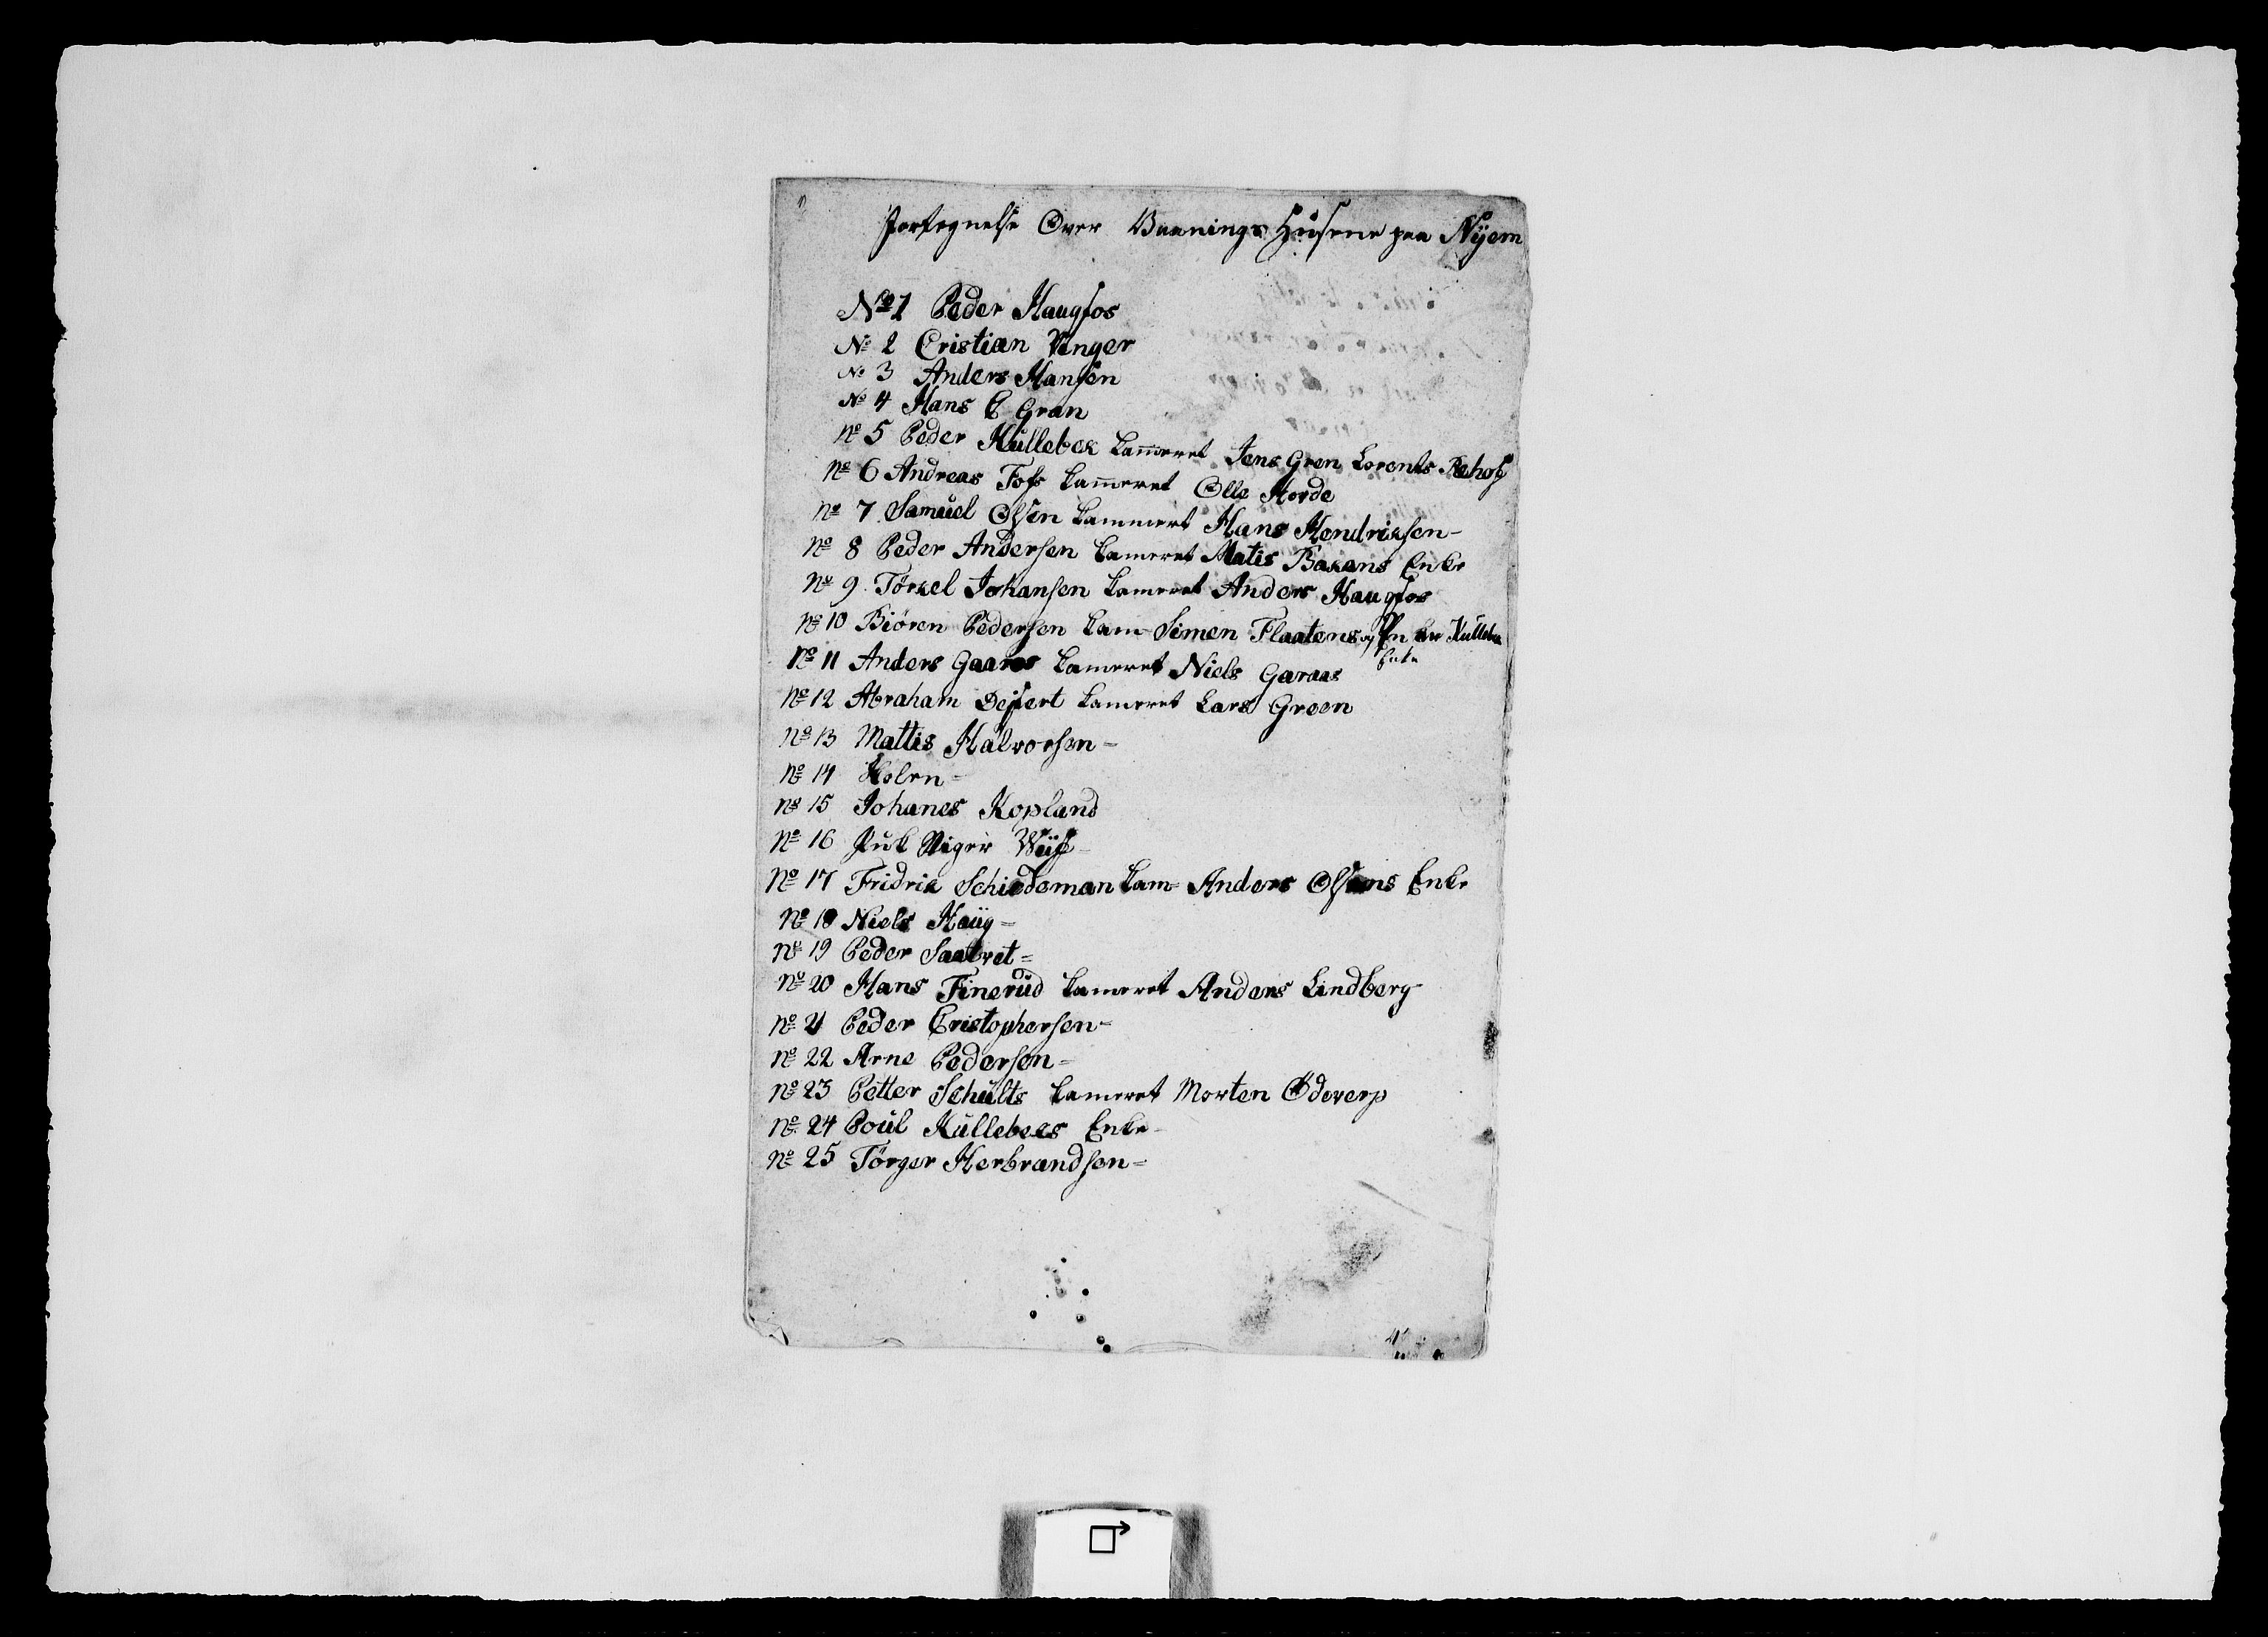 Fortegnelse Over Vaanings Huusene paa Nyem
No 1 Peder Haugfos
No 2 Cristian Vinger
No 3 Anders Hansen
No 4 Hans C Gran
No 5 Peder Kullebek kameret Jens Gren Lorents
No 6 Andreas Fofs kameret Olle Horde
No 7 Samuel Olsen kammert Hans Hendriksen
No 8 Peder Andersen kameret Matis Bakens Enke
No 9 Törkel Johansen kameret Anders Haugfos
No 10 Biören Pedersen kam Simen Flaatens og
Enke
No 11 Anders Gaaras kameret Niels Garaas
No 12 Abraham Deisert kameret Lars Green
No 13 Mattis Halvorsen
No 14 Skolen
No 15 Johanes Kopland
No 16
No 17 Fridrik Schiedeman kam Anders Olsens Enke
No 18 Niels Haug
No 19 Peder Saatvet
No 20 Hans Finerud kameret Anders Lindberg
No 21 Peder Cristophersen
No 22 Arne Pedersen
No 23 Petter Schults kameret Morten Odverp
No 24 Poul Kullebeks Enke
No 25 Törger Herbrandsen